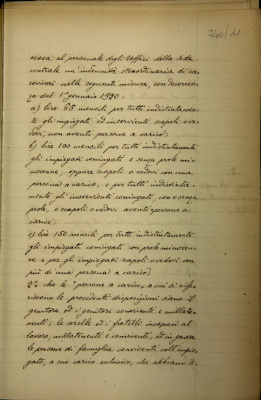 cessa al personale degli uffici della sede
centrale un'indennità straordinaria di ca-
roviveri nelle seguenti misure, con decorren-
za dal 1° gennaio 1920
a) lire 65 mensili per tutti indistintamen-
te gli impiegati ed inservienti scapoli o ve-
dovi, non aventi persone a carico;
b) lire 100 mensili per tutti indistintamente
gli impiegati coniugati e senza prole mi-
norenne, oppure scapoli o vedovi con una
persona a carico, e per tutti indistinta-
mente gli inservienti coniugati, con o senza
prole, o scapoli o vedovi aventi persone a
carico.
c) lire 150 mensili per tutti indistintamente
gli impiegati coniugati con prole minoren-
ne e per gli impiegati scapoli o vedovi con
più di una persona a carico;
2° che le persone a carico, a cui si rife-
riscono le precedenti disposizioni siano il
genitore od i genitori conviventi e nullate-
nenti; le sorelle ed i fratelli incapaci al
lavoro, nullatenenti e conviventi, ed in genere
le persone di famiglia conviventi coll'impie-
gato, a suo carico esclusivo, che abbiano di-